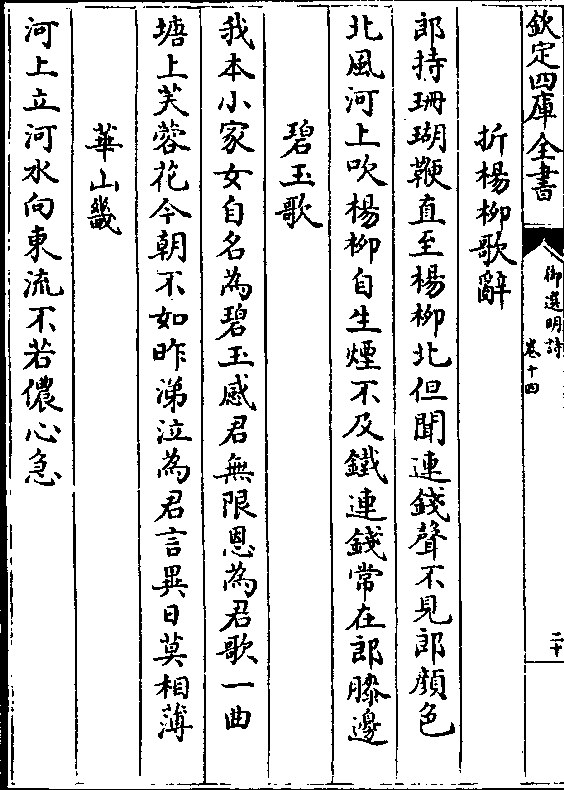 欽定四庫全書
御選明詩
卷十四
二十
折楊柳歌辭
郎持珊瑚鞭直至楊柳北但聞連錢聲不見郎顏色
北風河上吹楊柳自生煙不及鐵連錢常在郎膝邊
碧玉歌
我本小家女自名為碧玉感君無限恩為君歌一曲
塘上芙蓉花今朝不如昨涕泣為君言異日莫相薄
華山畿
河上立河水向東流不若儂心急